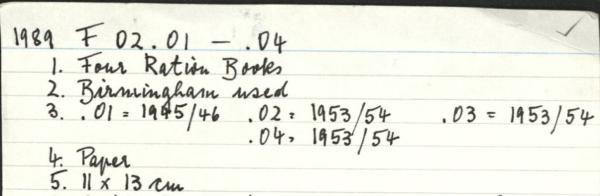 1989 F 02.01 – .04
1. Four Ration Books
2. Birmingham used
3. .01 = 1945/46 .02 = 1953/54 .03 = 1953/54
.04 = 1953/54
4. Paper
5. 11 x 13 cm